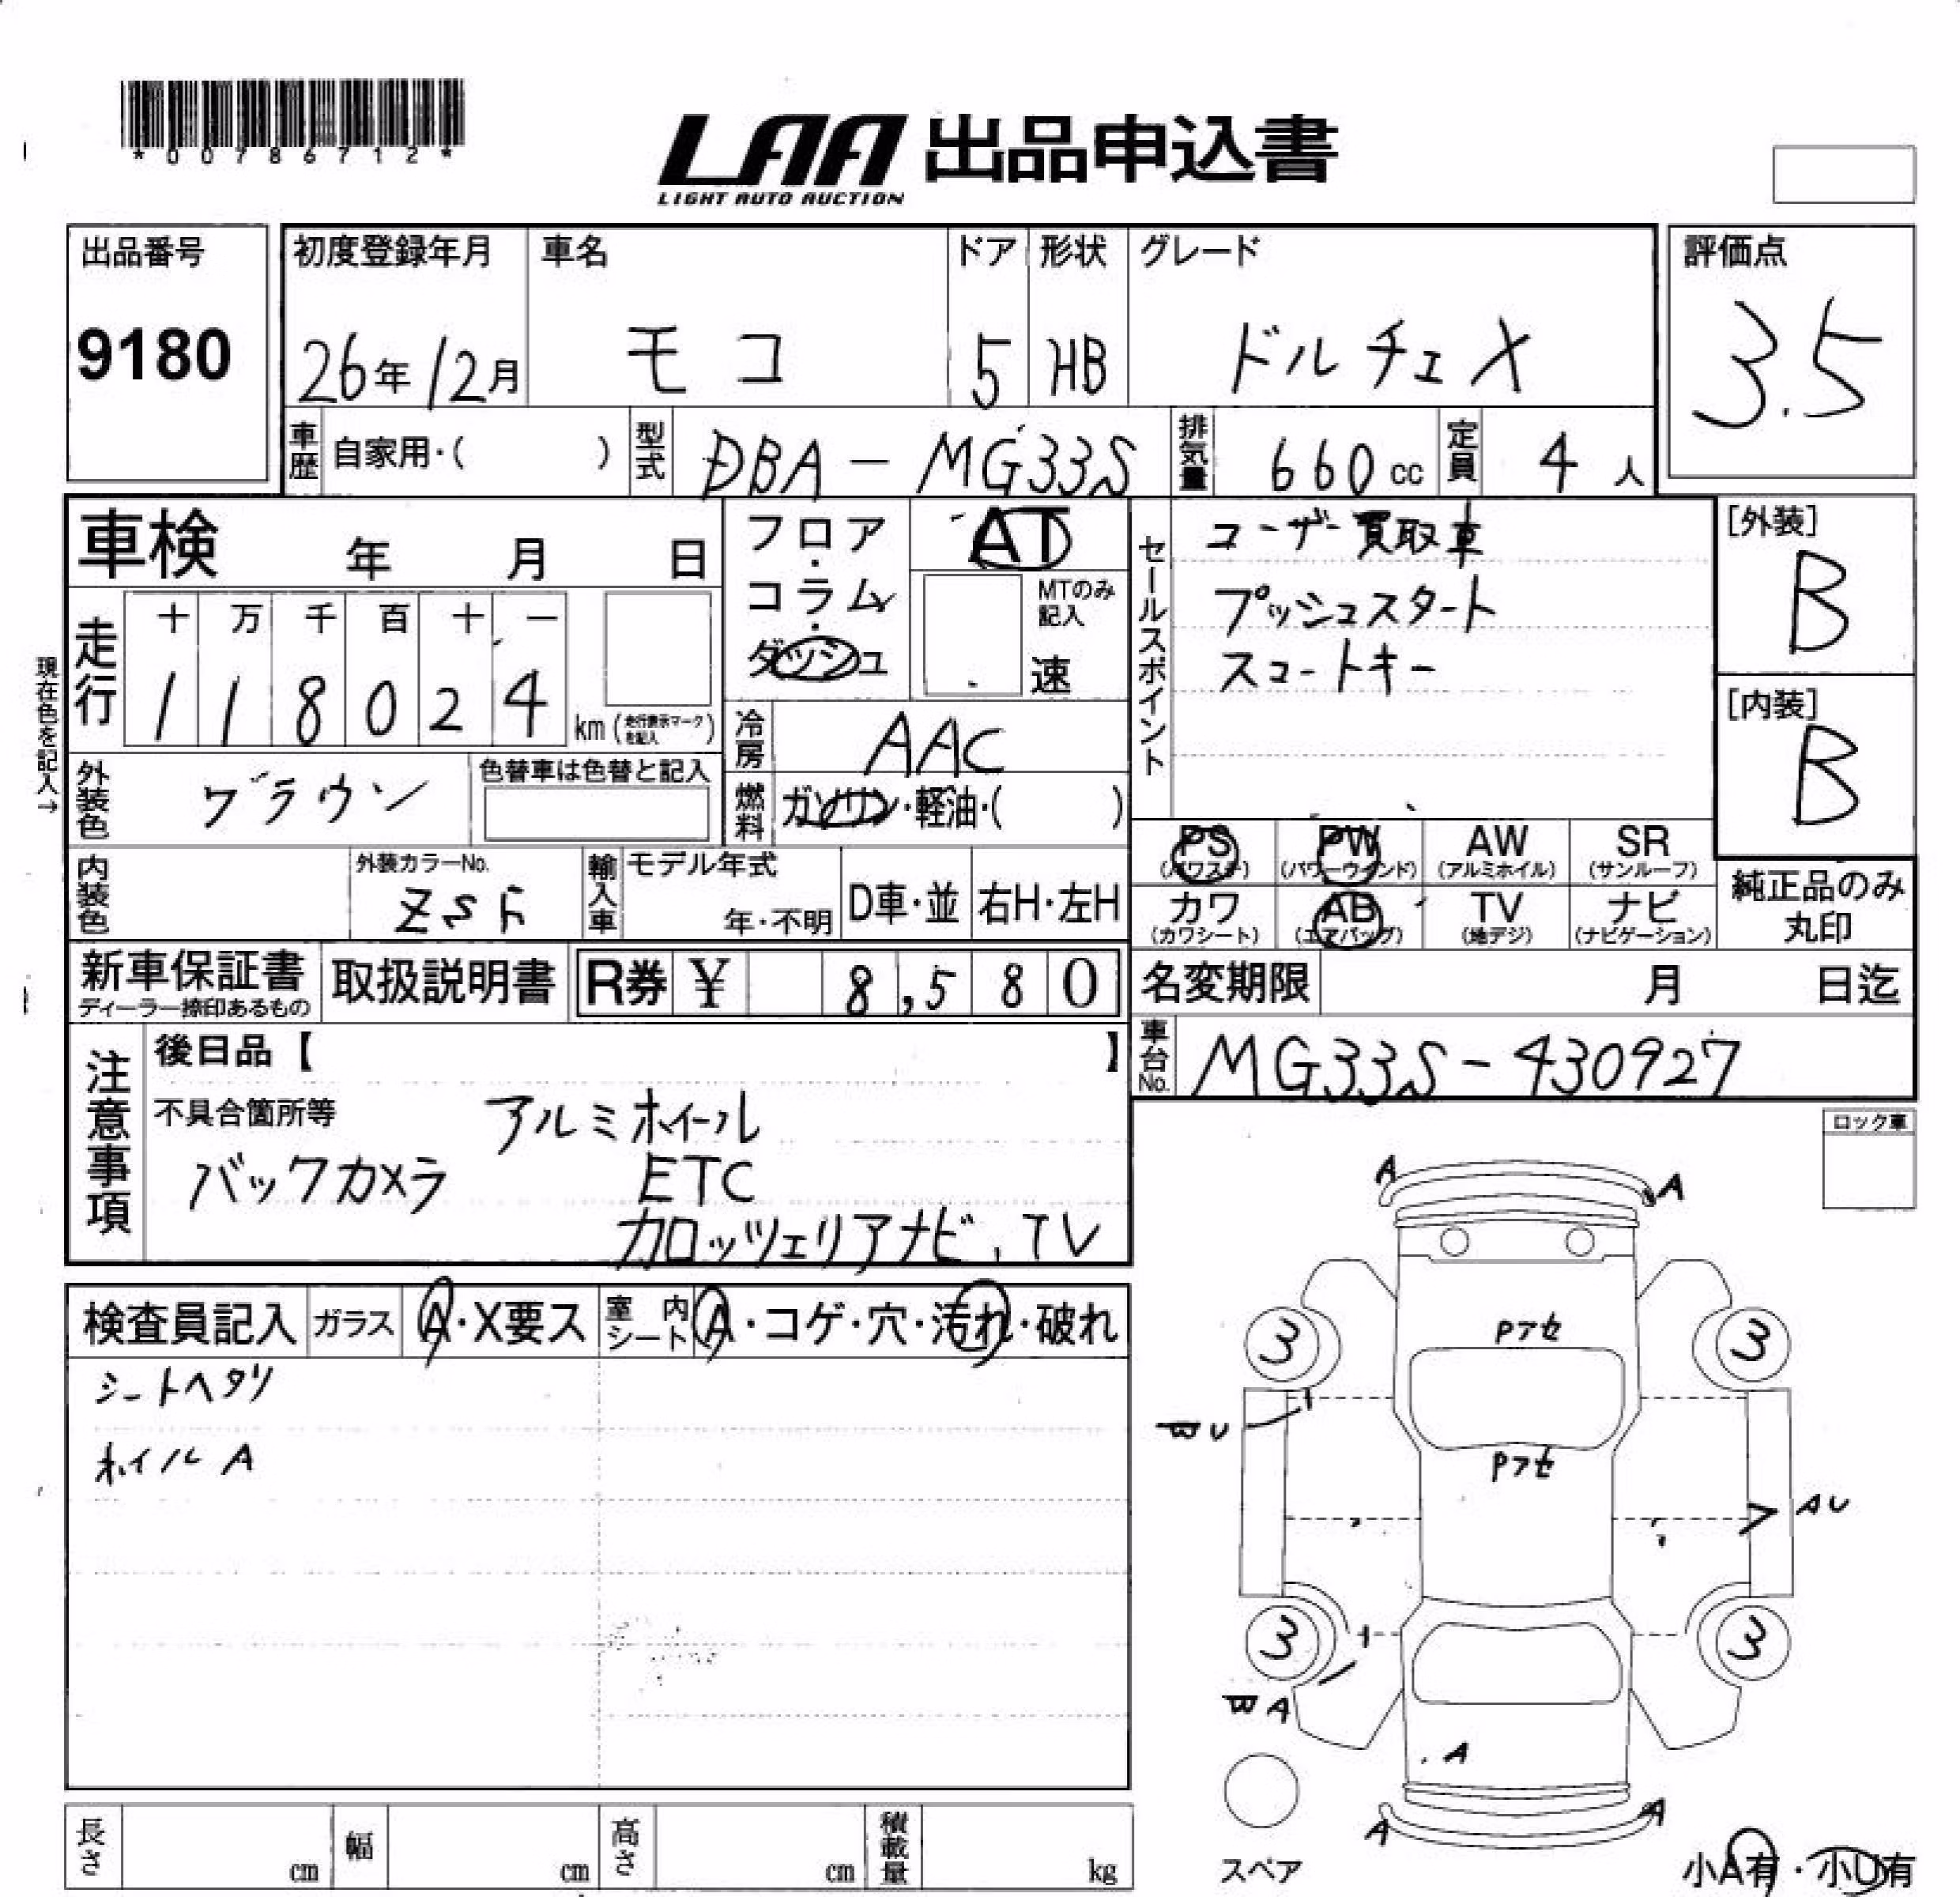 *00786712*
LAA 出品申込書
LIGHT AUTO AUCTION
出品番号
9180
初度登録年月
26年12月
車名
モコ
ドア
5
形状
HB
グレード
ドルチェX
評価点
3.5
車歴
自家用・( )
型式
DBA-MG33S
排気量
660cc
定員
4人
車検 年 月 日
フロア・コラム・ダッシュ
AT
MTのみ記入
速
セールスポイント
ユーザー買取車
プッシュスタート
スユートキー
[外装]
B
[内装]
B
現在色を記入→
走行
十 万 千 百 十 一
1 1 8 0 2 4
km(走行表示マークを記入)
冷房
AAC
外装色
ブラウン
色替車は色替と記入
燃料
ガソリン・軽油・( )
内装色
外装カラーNo.
輸入車
モデル年式
年・不明
D車・並
右H・左H
PS
(パワステ)
PW
(パワーウインド)
AW
(アルミホイル)
SR
(サンルーフ)
カワ
(カワシート)
AB
(エアバッグ)
TV
(地デジ)
ナビ
(ナビゲーション)
純正品のみ
丸印
新車保証書
ディーラー捺印あるもの
取扱説明書
R券 ¥ 8,580
名変期限 月 日迄
車台No.
MG33S-430927
注意事項
後日品【 】
不具合箇所等
アルミホイール
バックカメラ
ETC
カロッツェリアナビ、TV
ロック車
検査員記入
ガラス
A・X要ス
室内シート
A・コゲ・穴・汚れ・破れ
シートヘタリ
ホイルA
A
A
Pアセ
3
3
WU
Pアセ
AU
3
3
WA
A
A
A
スペア
小A有・小U有
長さ cm
幅 cm
高さ cm
積載量 kg